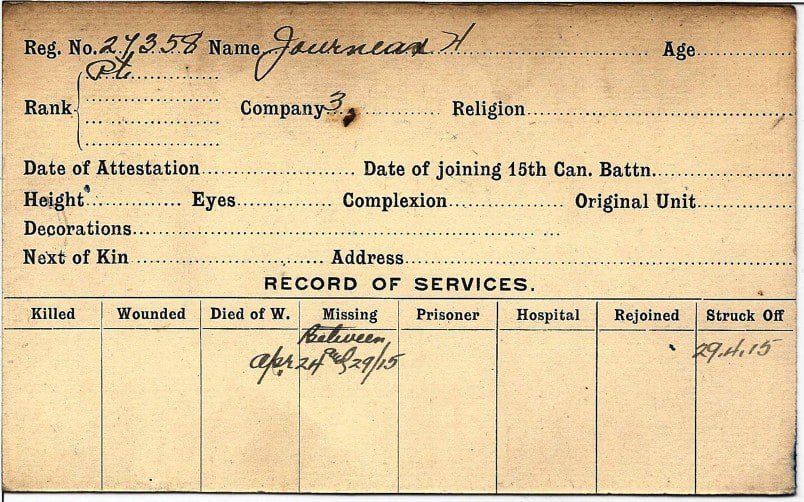 Reg. No. 27358 Name Journeax H Age
Pt.
Rank Company 3 Religion
Date of Attestation Date of joining 15th Can. Battn.
Height Eyes Complexion Original Unit
Decorations
Next of Kin Address
RECORD OF SERVICES.
Killed Wounded Died of W. Missing Prisoner Hospital Rejoined Struck Off
Between
Apr 24 and 29/15 29.4.15